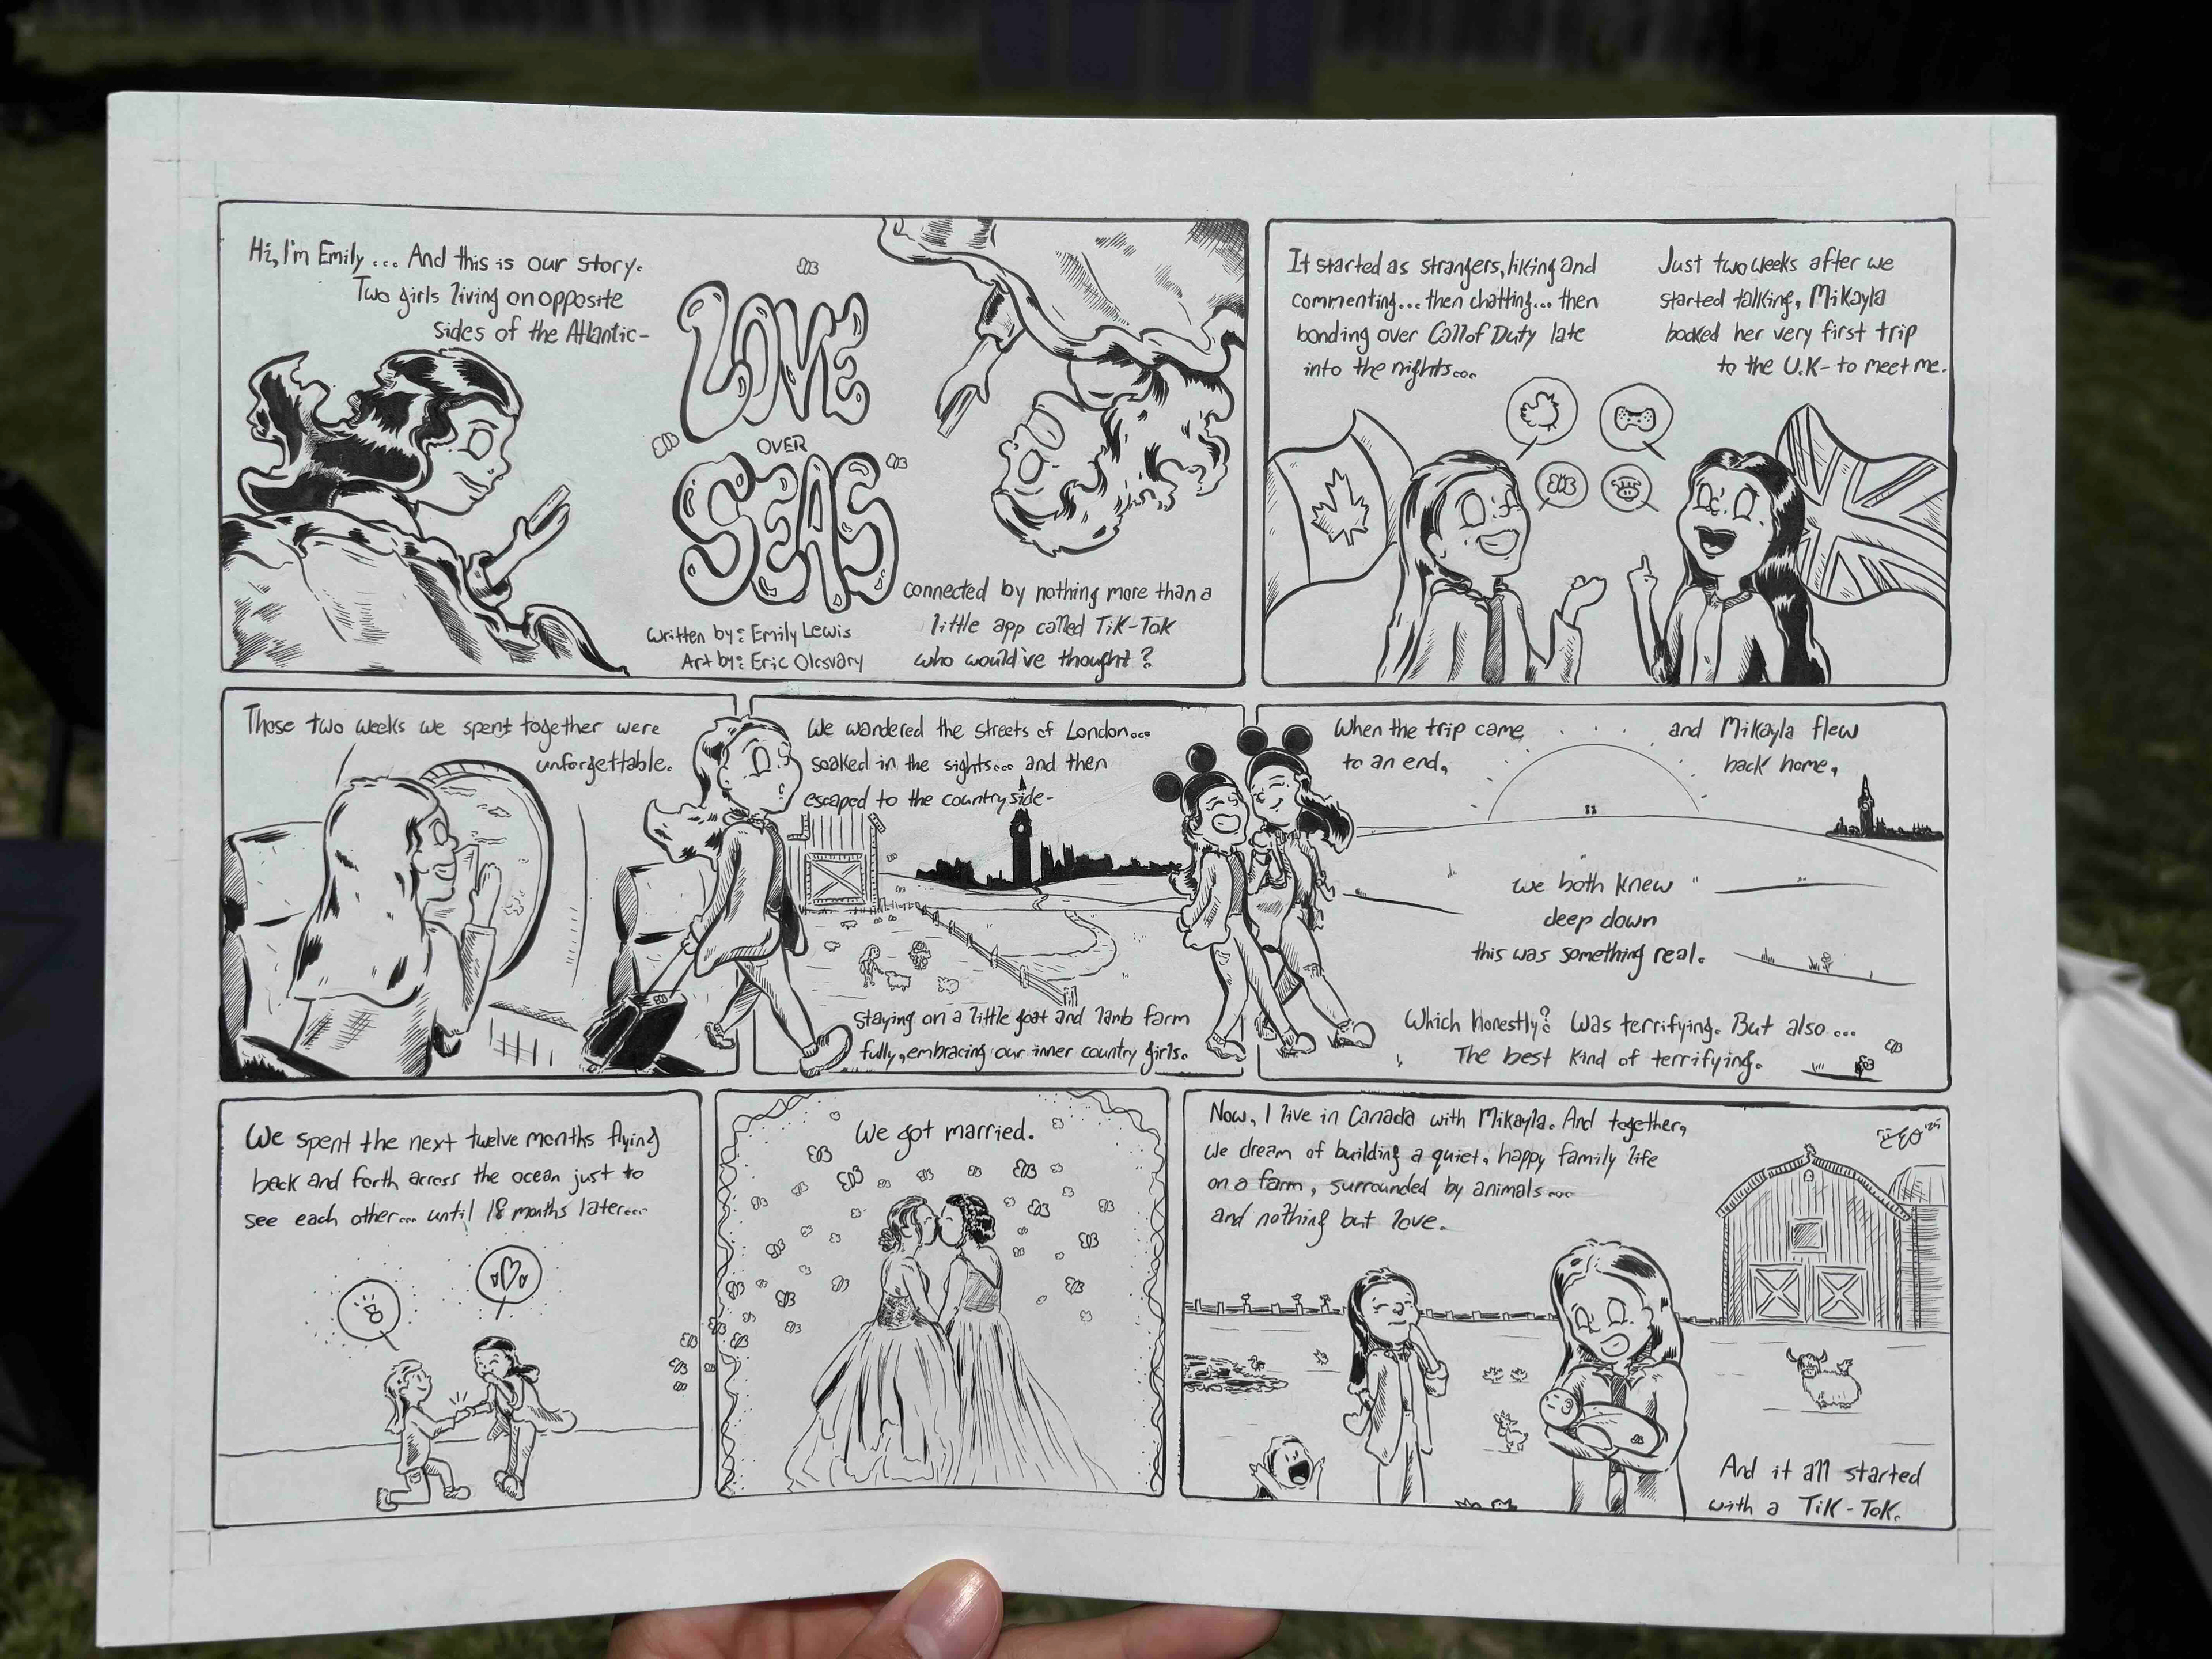 Hi, I'm Emily... And this is our story.
Two girls living on opposite
sides of the Atlantic-
LOVE
OVER
SEAS
Written by: Emily Lewis
Art by: Eric Olcsvary
connected by nothing more than a
little app called TiK-Tok
who would've thought?
It started as strangers, liking and
commenting... then chatting... then
bonding over Call of Duty late
into the nights...
Just two weeks after we
started talking, Mikayla
booked her very first trip
to the U.K- to meet me.
Those two weeks we spent together were
unforgettable.
We wandered the streets of London...
soaked in the sights... and then
escaped to the countryside-
staying on a little goat and lamb farm
fully, embracing our inner country girls.
When the trip came
to an end,
and Mikayla flew
back home,
we both knew
deep down
this was something real.
Which honestly? Was terrifying. But also...
The best kind of terrifying.
We spent the next twelve months flying
back and forth across the ocean just to
see each other... until 18 months later...
We got married.
Now, I live in Canada with Mikayla. And together,
we dream of building a quiet, happy family life
on a farm, surrounded by animals...
and nothing but love.
And it all started
with a TiK-ToK.